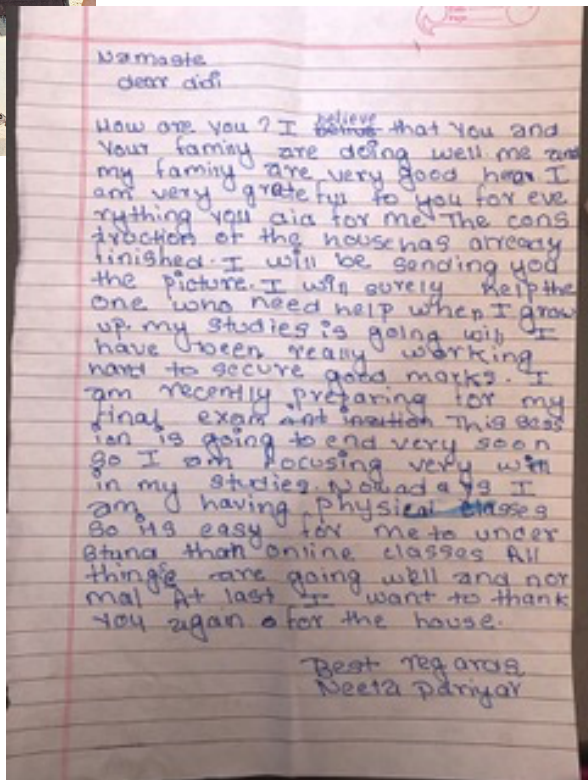 Namaste
dear didi
How are you? I believe that you and
your faminy are deing well me and
my faminy are very good hear I
am very grateful to you for eve
rything you aid for me The cons
truction of the house has arready
finished. I will be sending you
the picture. I will surely help the
one who need help when I grow
up. my studies is going will I
have been really working
hard to secure good marks. I
am recently preparing for my
final exam This sess
ion is going to end very soon
so I am focusing very will
in my studies. Nowadays I
am having physical classes
so its easy for me to under
stand than online classes All
things are going well and nor
mal At last I want to thank
you again for the house.
Best regards
Neeta pariyar